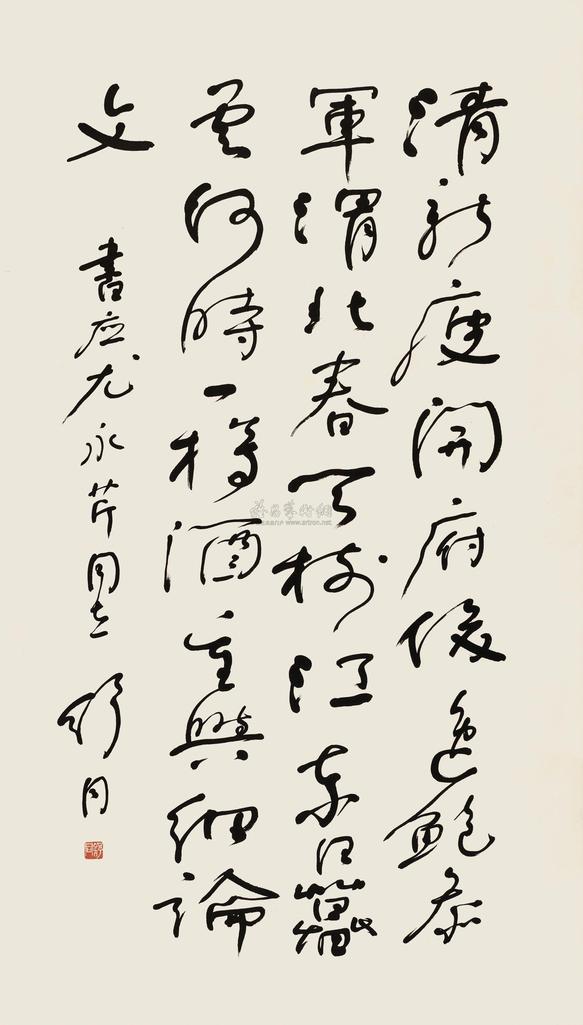 清新庾開府俊逸鮑參
軍渭北春天樹江東日暮
雲何時一樽酒重與細論
文
書应尤永芹同志 舒同
舒同
雅昌藝術網
www.artron.net